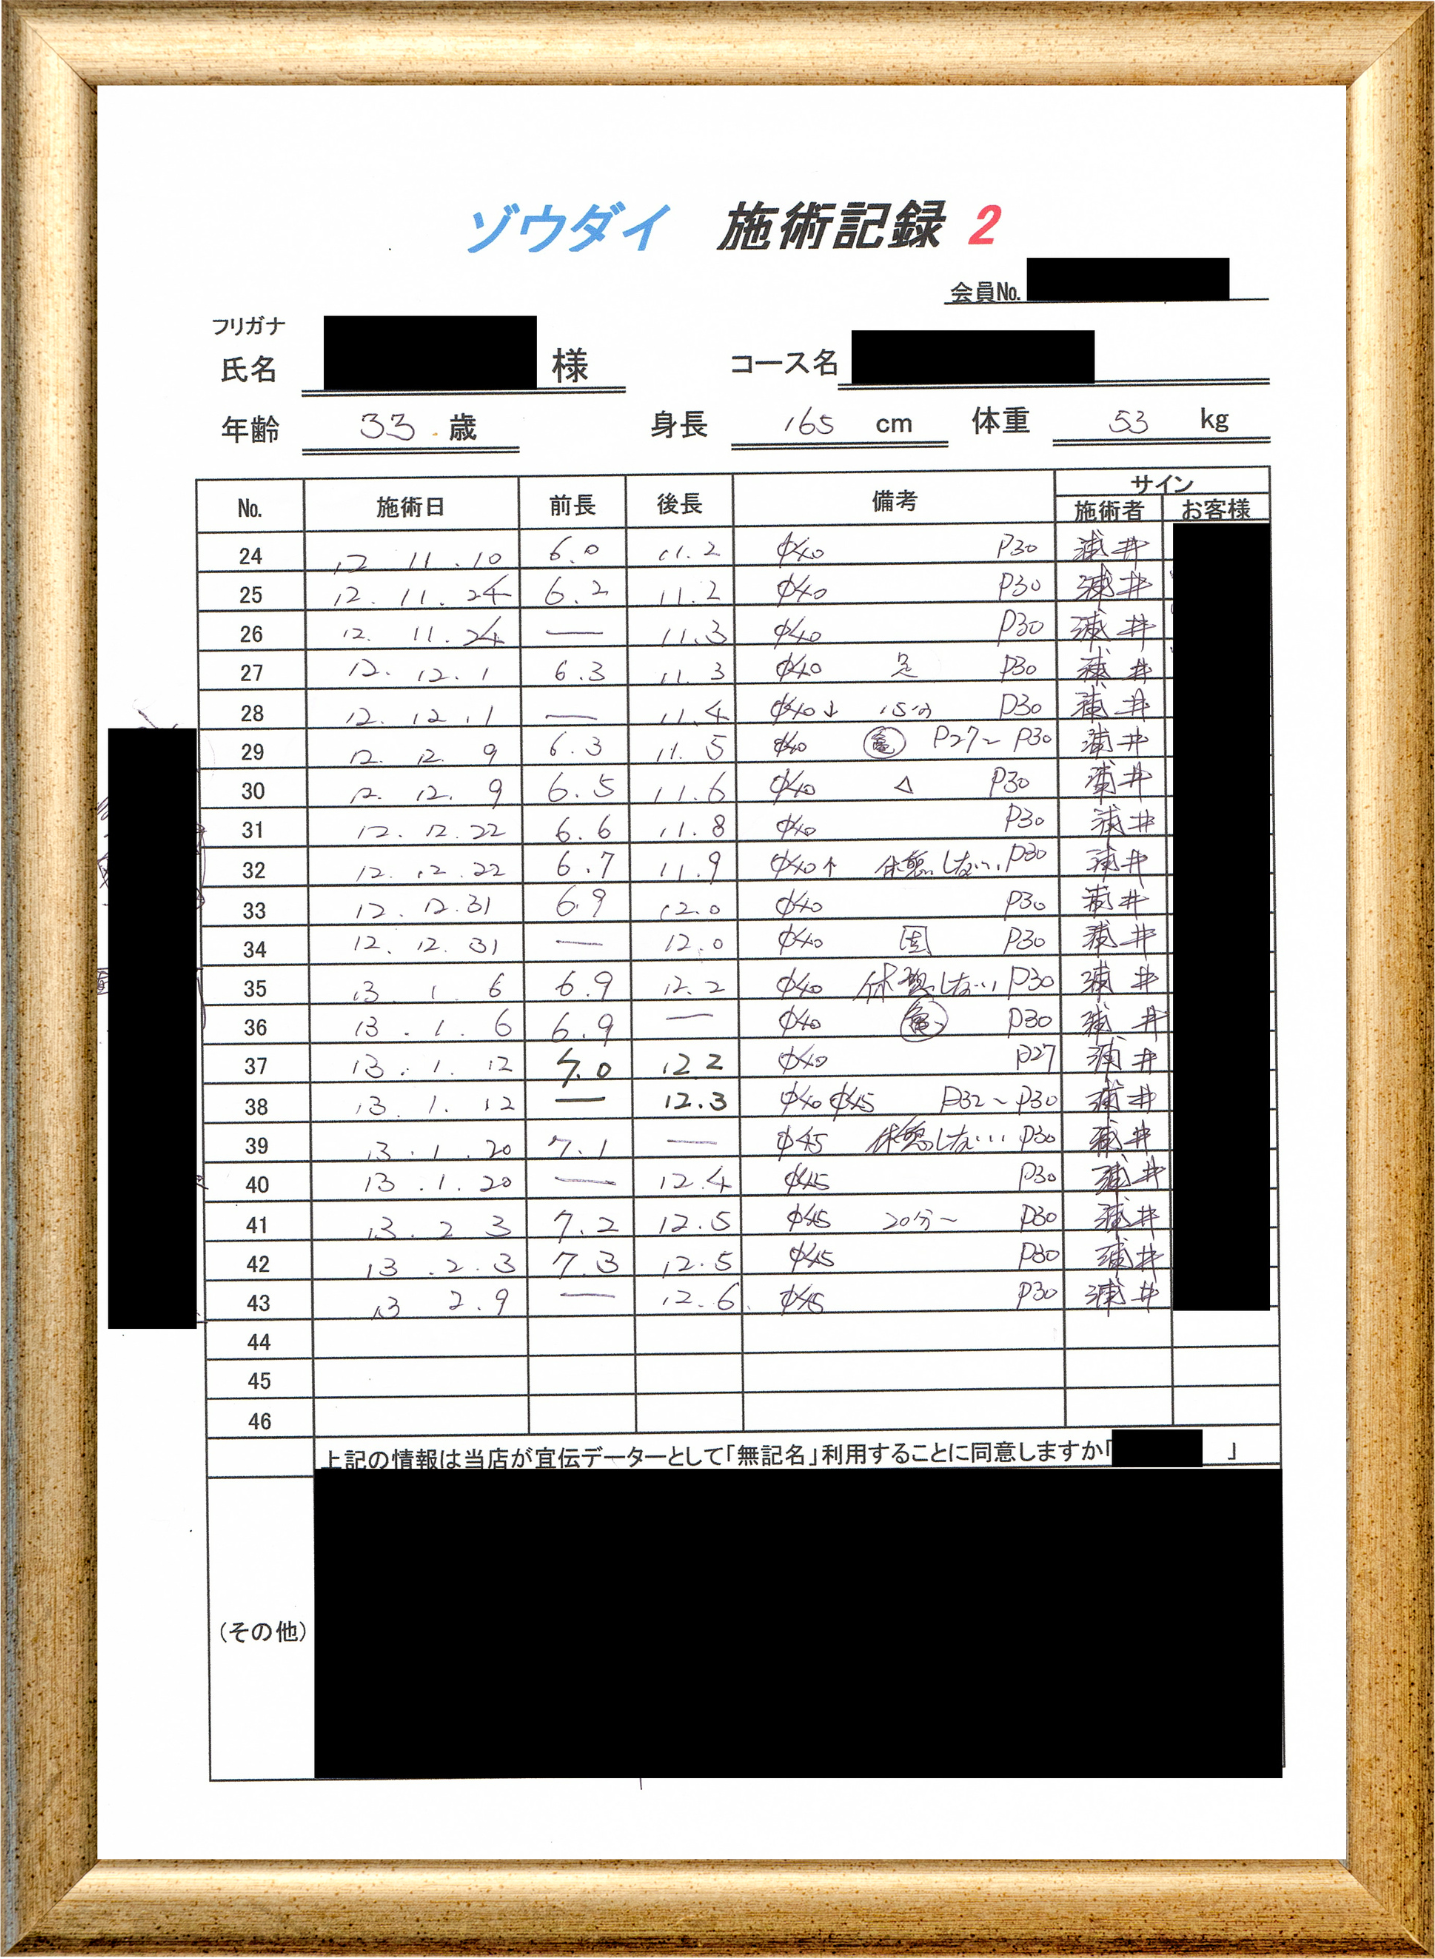 ゾウダイ 施術記録 2
会員No.
フリガナ
氏名 様 コース名
年齢 33 歳 身長 165 cm 体重 53 kg
No. 施術日 前長 後長 備考 サイン
施術者 お客様
24 12 11.10 6.0 11.2 φ40 P30
25 12.11.24 6.2 11.2 φ40 P30
26 12.11.24 — 11.3 φ40 P30
27 12.12.1 6.3 11.3 φ40 P30
28 12.12.1 — 11.4 φ40↓ 15分 P30
29 12.12.9 6.3 11.5 φ40 P27~P30
30 12.12.9 6.5 11.6 φ40 △ P30
31 12.12.22 6.6 11.8 φ40 P30
32 12.12.22 6.7 11.9 φ40↑ 休憩しない P30
33 12.12.31 6.9 12.0 φ40 P30
34 12.12.31 — 12.0 φ40 P30
35 13.1.6 6.9 12.2 φ40 休憩しない P30
36 13.1.6 6.9 — φ40 P30
37 13.1.12 7.0 12.2 φ40 P27
38 13.1.12 — 12.3 φ40 φ45 P32~P30
39 13.1.20 7.1 — φ45 休憩しない P30
40 13.1.20 — 12.4 φ45 P30
41 13.2.3 7.2 12.5 φ45 20分~ P30
42 13.2.3 7.3 12.5 φ45 P30
43 13 2.9 — 12.6 φ45 P30
44
45
46
上記の情報は当店が宣伝データーとして「無記名」利用することに同意しますか「 」
(その他)